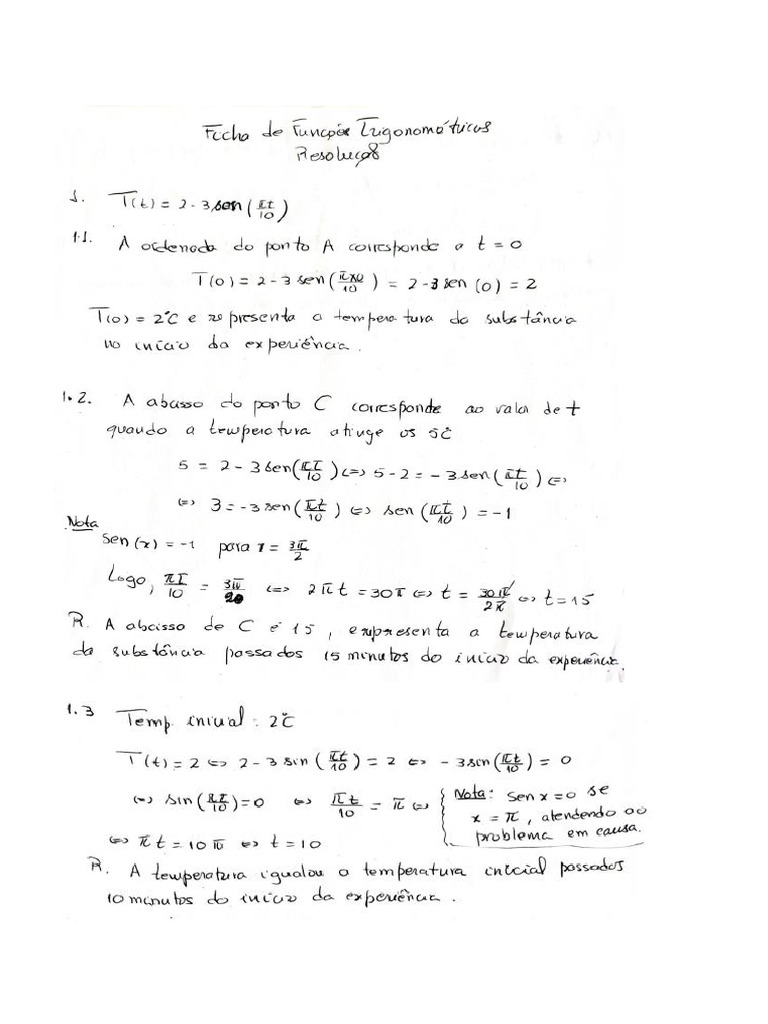 Ficha de Funções Trigonométricas
Resolução
1. T(t) = 2 - 3 sen(πt/10)
1.1. A ordenada do ponto A corresponde a t = 0
T(0) = 2 - 3 sen(π×0/10) = 2 - 3 sen(0) = 2
T(0) = 2°C e representa a temperatura da substância
no início da experiência.
1.2. A abcissa do ponto C corresponde ao valor de t
quando a temperatura atinge os 5°C
5 = 2 - 3 sen(πt/10) <=> 5 - 2 = - 3 sen(πt/10) <=>
<=> 3 = - 3 sen(πt/10) <=> sen(πt/10) = - 1
Nota
sen(x) = -1 para x = 3π/2
Logo, πt/10 = 3π/2 <=> 2πt = 30π <=> t = 30π/2π <=> t = 15
R. A abcissa de C é 15, e representa a temperatura
da substância passados 15 minutos do início da experiência.
1.3 Temp. inicial: 2°C
T(t) = 2 <=> 2 - 3 sin(πt/10) = 2 <=> - 3 sin(πt/10) = 0
<=> sin(πt/10) = 0 <=> πt/10 = π <=>
Nota: sen x = 0 se
x = π, atendendo ao
problema em causa.
<=> πt = 10π <=> t = 10
R. A temperatura igualou a temperatura inicial passados
10 minutos do início da experiência.